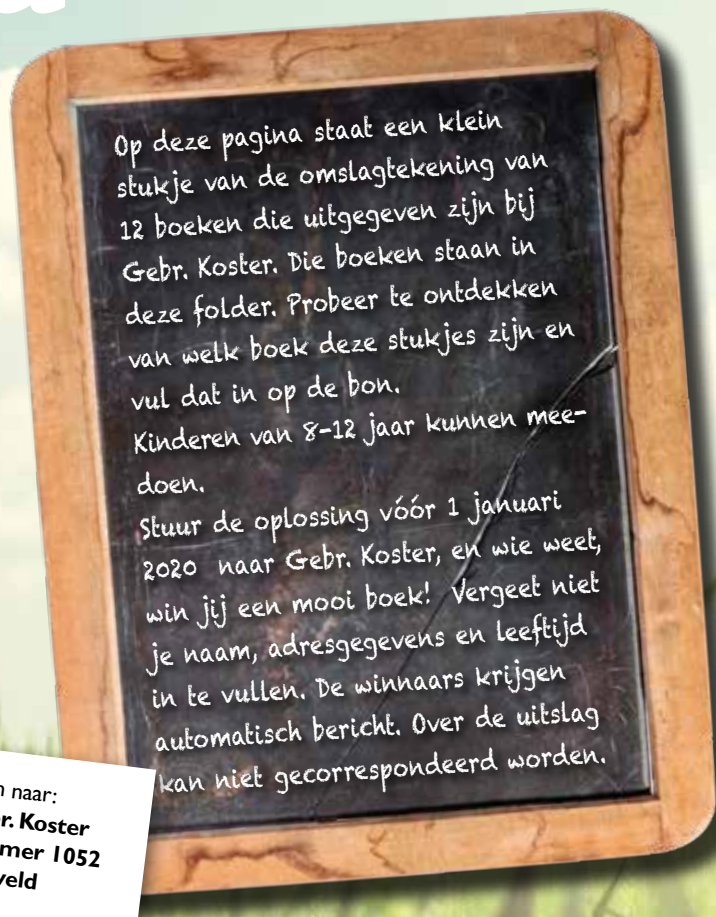 Op deze pagina staat een klein
stukje van de omslagtekening van
12 boeken die uitgegeven zijn bij
Gebr. Koster. Die boeken staan in
deze folder. Probeer te ontdekken
van welk boek deze stukjes zijn en
vul dat in op de bon.
Kinderen van 8-12 jaar kunnen mee-
doen.
Stuur de oplossing vóór 1 januari
2020 naar Gebr. Koster, en wie weet,
win jij een mooi boek! Vergeet niet
je naam, adresgegevens en leeftijd
in te vullen. De winnaars krijgen
automatisch bericht. Over de uitslag
kan niet gecorrespondeerd worden.
naar:
Koster
1052